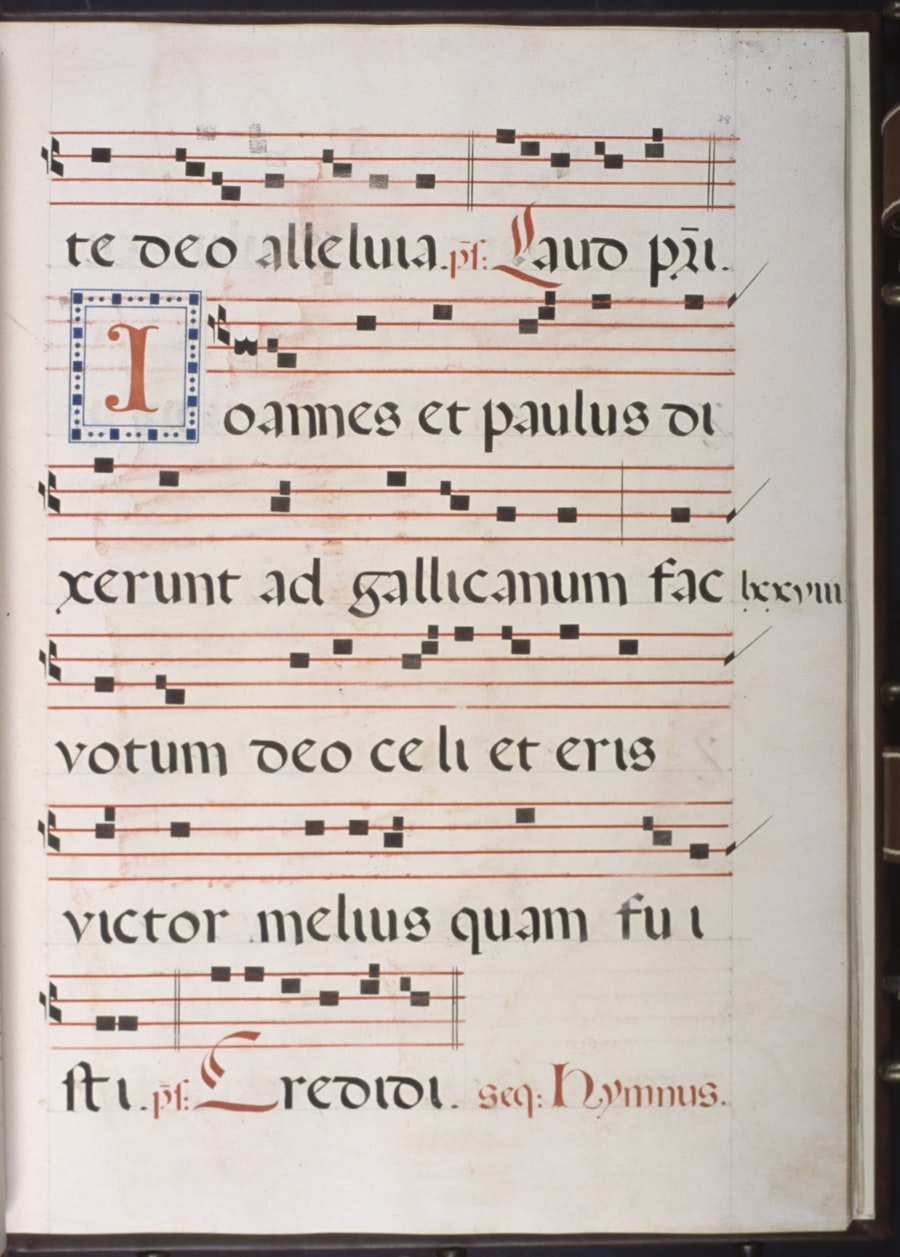 28
te deo alleluia. ps: Laud pri.
Ioannes et paulus di
xerunt ad gallicanum fac lxxviii
votum deo celi et eris
victor melius quam fui
sti. ps: Credidi. seq: Hymnus.